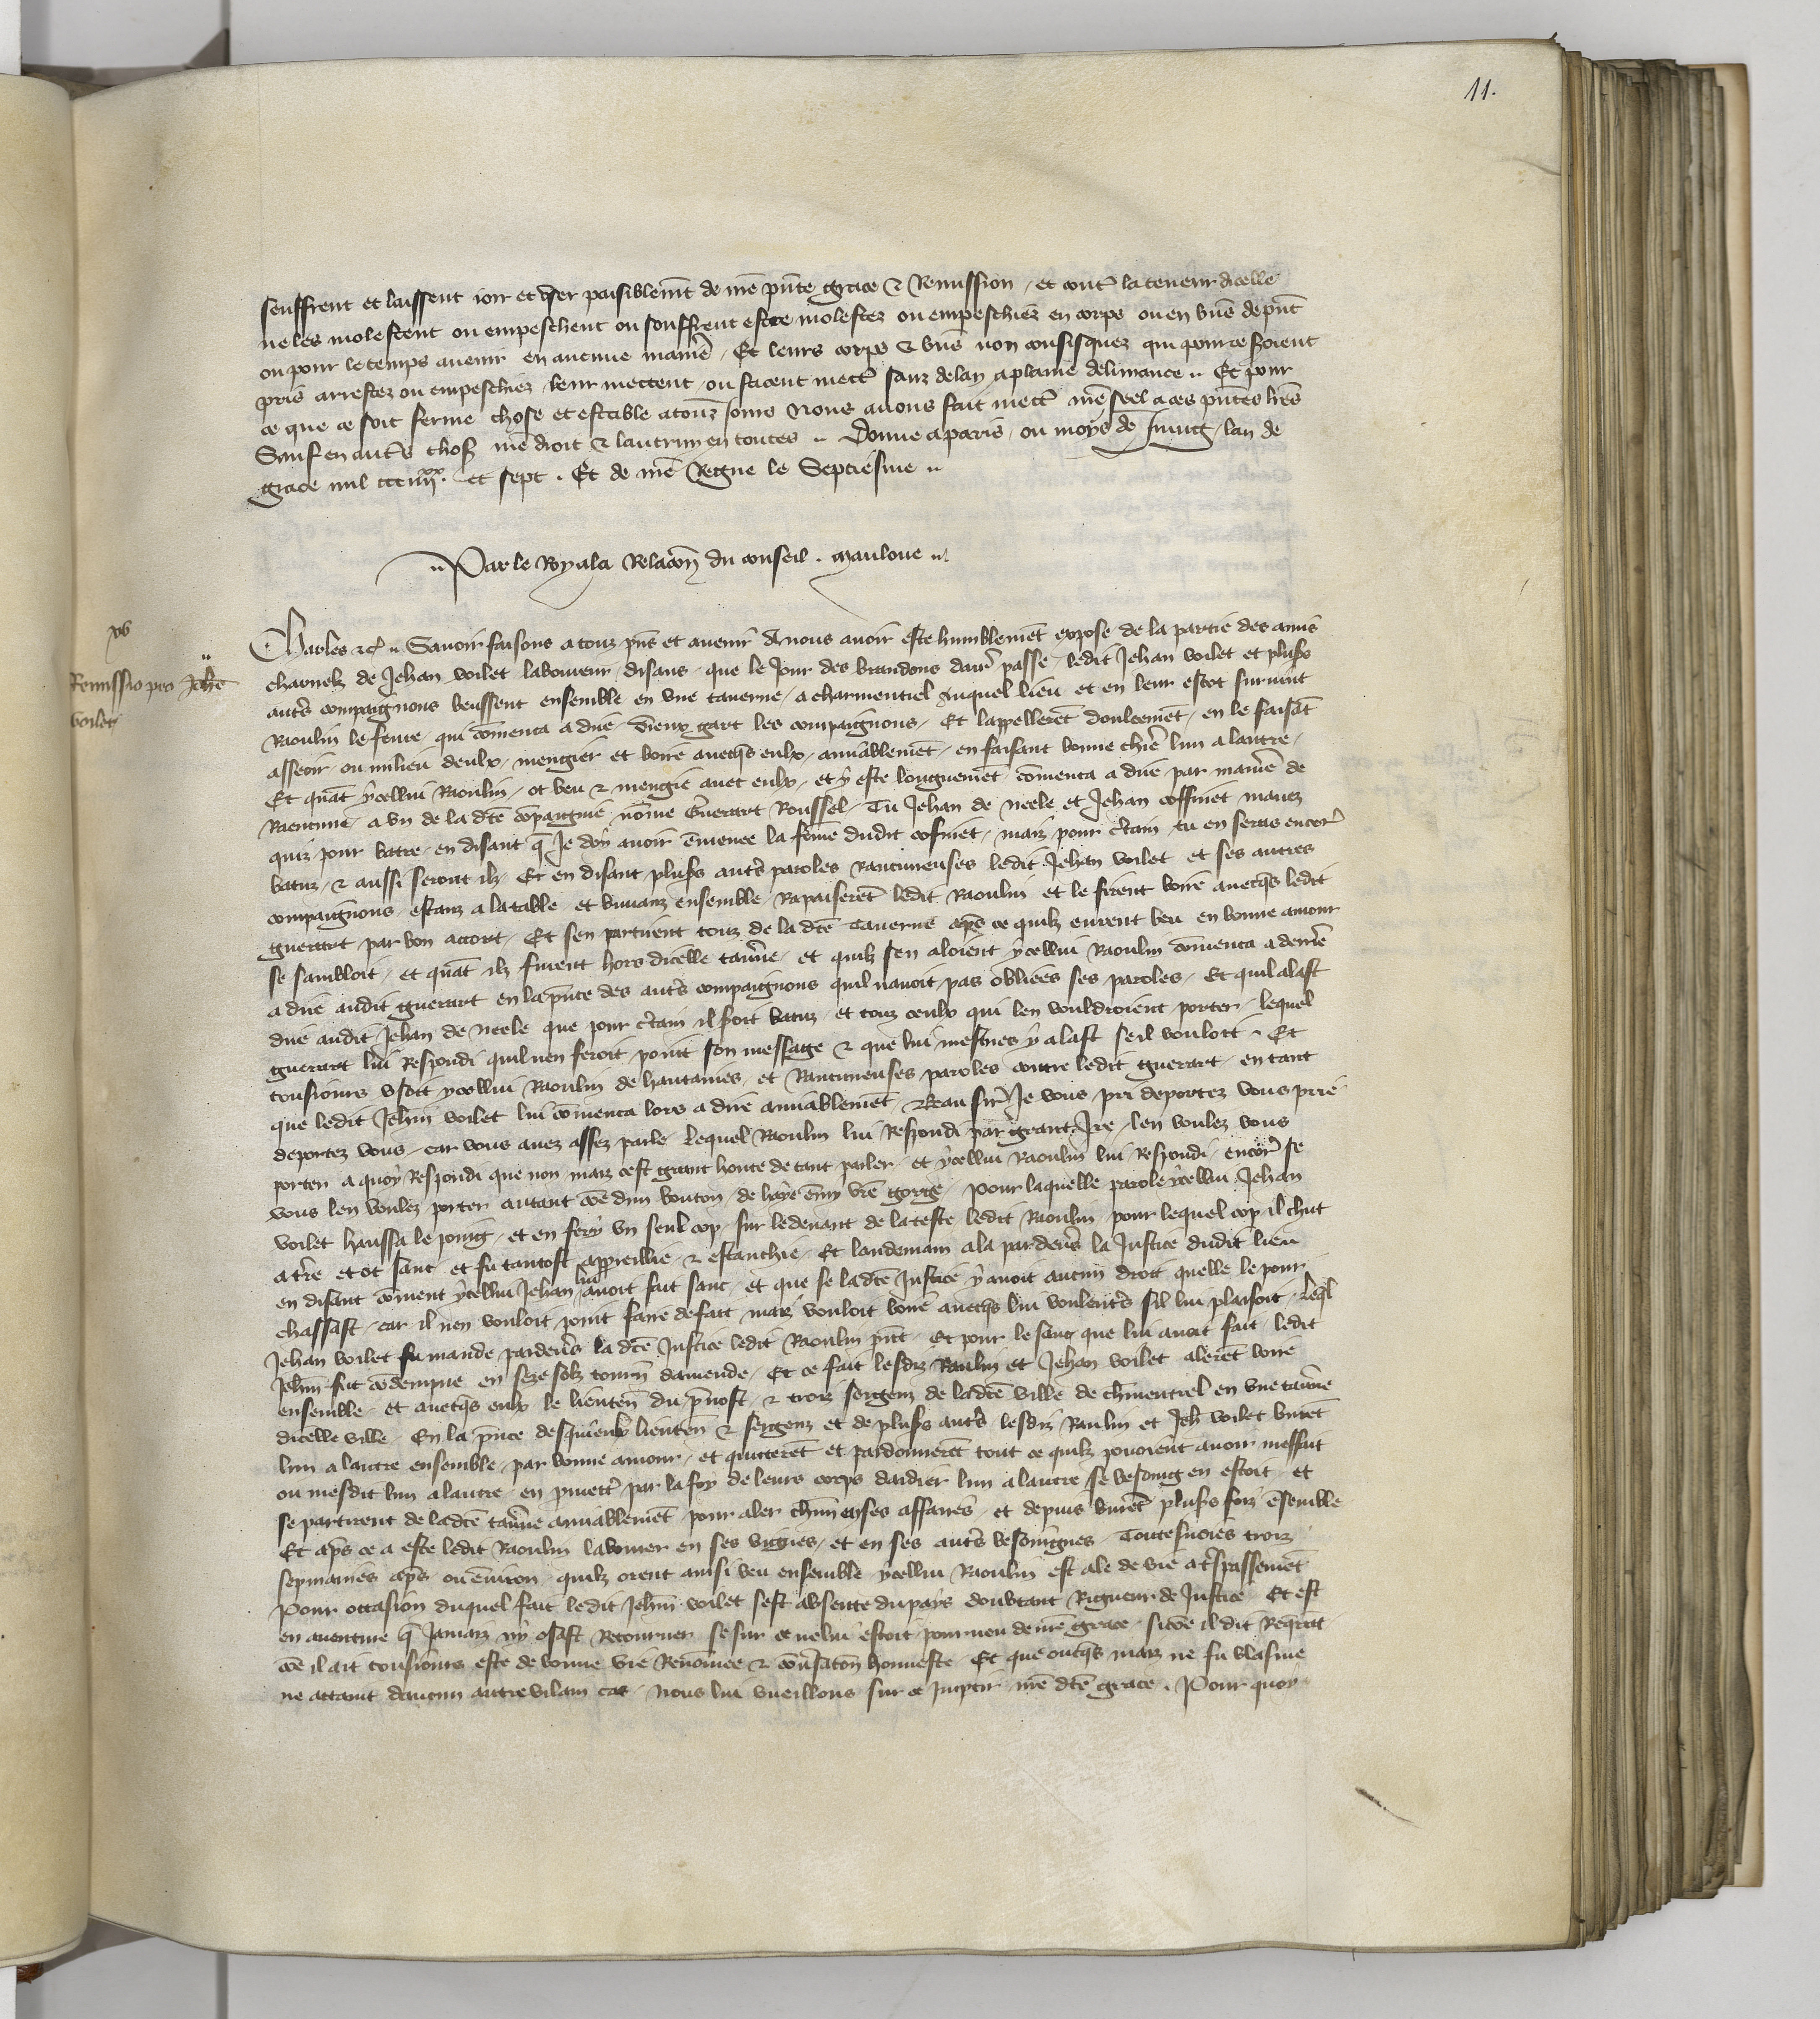 11.
seuffrent et laissent joir et user paisiblemēt de nr̄e pn̄te grace & Remission / et contr̄ la teneur dicelle
ne les molestent ou empeschent ou souffrent estre molestez ou empeschiez en corps ou en biēs de pn̄t
ou pour le temps auenir en aucune manie͛ / Et leurs corps & biēs non confisquez qui pour ce s͛oient
pris arrestez ou empeschiez leur mettent / ou facent mett͛ sanz delay a plaine deliurance .. Et pour
ce que ce soit ferme chose et estable a touz iours Nous auons fait mett͛ nr̄e seel a ces pn̄tes lr̄es
Sauf en aut͛s chos̄ nr̄e droit & lautruy en toutes .. Donne a paris / ou moys de Juing / lan de
grace mil ccc iiijͯͯ . et sept . Et de nr̄e Regne le Septiesme ..
.. Par le Roy a la Relacōn du conseil . Mauloue ..
xv
Remissio pro Joh̄e
voilet
Charles &c̄ .. Sauoir faisons a touz pn̄s et auenir A nous auoir este humblemēt expose de la partie des amis
charnelz de Jehan voilet laboureur / disans / que le Jour des brandons darr̄ passe / ledit Jehan voilet et plus͛s
aut͛s compaignons beussent ensemble en vne tauerne / a charmentiel Auquel lieu et en leur escot suruint
Raoulin le feure / qui cōmenca a dire / dieux gart les compaignons / Et lappellerēt doulcemēt / en le faisāt
asseoir / ou milieu deulx / mengier et boire auecq̄s eulx / amiablemēt / en faisant bonne chie͛e lun a lautre /
Et quāt ycellui Raoulin / ot beu & mengie auec eulx / et y este longuemēt cōmenca a dire / par manie͛e de
Raencune / a vn de la dc̄e cōpaignie nōme Guerart Roussel / Tu Jehan de neele et Jehan coffinet mauez
quiz pour batre / en disant q̄ Je doy auoir ēmenee la fēme dudit cofinet / maiz pour c͛tain tu en seras encor͛
batuz / & aussi seront ilz / Et en disant plus͛s aut͛s paroles Rancuneuses ledit Jehan voilet et ses autres
compaignons / estanz a la table / et buuanz ensemble / Rapaiserēt ledit Raoulin et le firent boire auecq̄s ledit
guerart par bon accort / Et sen partirent touz de la dc̄e Tauerne ap̄s ce quilz eurent beu en bonne amour
se sambloit / et quāt ilz furent hors dicelle tau͛ne / et quilz sen aloient ycellui Raoulin cōmenca a derrie͛
a dire audit guerart en la pn̄ce des aut͛s compaignons quil nauoit pas obliees ses paroles / Et quil alast
dire audit Jehan de neele que pour c͛tain il s͛oit batuz / et touz ceulx qui len vouldroient porter / lequel
guerart lui Respondi quil nen feroit point son message & que lui mesmes y alast seil vouloit . Et
tousiours vsoit ycellui Raoulin de hautaines / et Rancuneuses paroles contre ledit guerart / en tant
que ledit Jehan voilet lui cōmenca lors a dire amiablemēt / Beau sir͛ Je vous pri deportez vous prie
deportez vous / car vous auez assez parle / Lequel Raoulin lui Respondi par grant Ire / len voulez vous
porter a quoy Respondi que non maiz cest grant honte de tant parler / et ycellui Raoulin lui Respondi / encor͛ se
vous len voulez porter autant cōe dun bouton / de haye ēmy vr̄e gorge / Pour laquelle parole ycellui Jehan
voilet haussa le poing / et en fery vn seul cop / sur le deuant de la teste ledit Raoulin / pour lequel cop il chut
a tr͛e et ot sanc / et fu tantost appreillie / & estanchie / Et lendemain ala par deu͛s la Justice dudit lieu
en disant cōment ycellui Jehan lui auoit fait sanc / et que se la dc̄e Justice y auoit aucun droit quelle le pour
chassast / car il nen vouloit point faire de fait / maiz vouloit boire auecq̄s lui voulent͛s sil lui plaisoit / Leq̄l
Jehan voilet fu mande pardeu͛s la dc̄e Justice ledit Raoulin pn̄t / Et pour le sanc que lui auoit fait / ledit
Jehan fut cōdempne en seze solz tourn̄ damende / Et ce fait lesdiz Raulin et Jehan voilet alerēt boire
ensemble / et auecq̄s eulx le lieuten̄ du pr̄uost / & troiz sergenz de la dc̄e ville de ch͛mentiel en vne tau͛ne
dicelle ville / En la pn̄ce desquieulx lieuten̄ & sergenz et de plus͛s aut͛s / lesdiz Raulin et Jeh̄ voilet burēt
lun a lautre ensemble / par bonne amour / et quitterēt et pardonnerēt tout ce quilz pouoient auoir meffait
ou mesdit lun a lautre / en promett͛ par la foy de leurs corps daidier lun a lautre se besoing en estoit / et
se partirent de la dc̄e tau͛ne amiablemēt / pour aler ch͛un en ses affaires / et depuis burēt plus͛s foiz ēsemble
Et ap̄s ce a este ledit Raoulin labourer en ses vignes / et en ses aut͛s besoingnes Toutesuoies troiz
sepmaines ap̄s ou enuiron / quilz orent ainsi beu ensemble ycellui Raoulin est ale de vie a tr͛spassemēt
Pour occasion duquel fait ledit Jehan voilet sest absente du pays doubtant Rigueur de Justice / Et est
en auenture q̄ Jamaiz ny osast Retourner se sur ce ne lui estoit pourueu de nr̄e grace / si cōe il dit Requerāt
cōe il ait tousiours este de bonne vie Renōmee & conu͛sac̄on honneste / Et que oncq̄s maiz ne fu blasme
ne attaint daucun autre vilain cas / Nous lui vueillons sur ce Impartir nr̄e dc̄e grace . Pour quoy